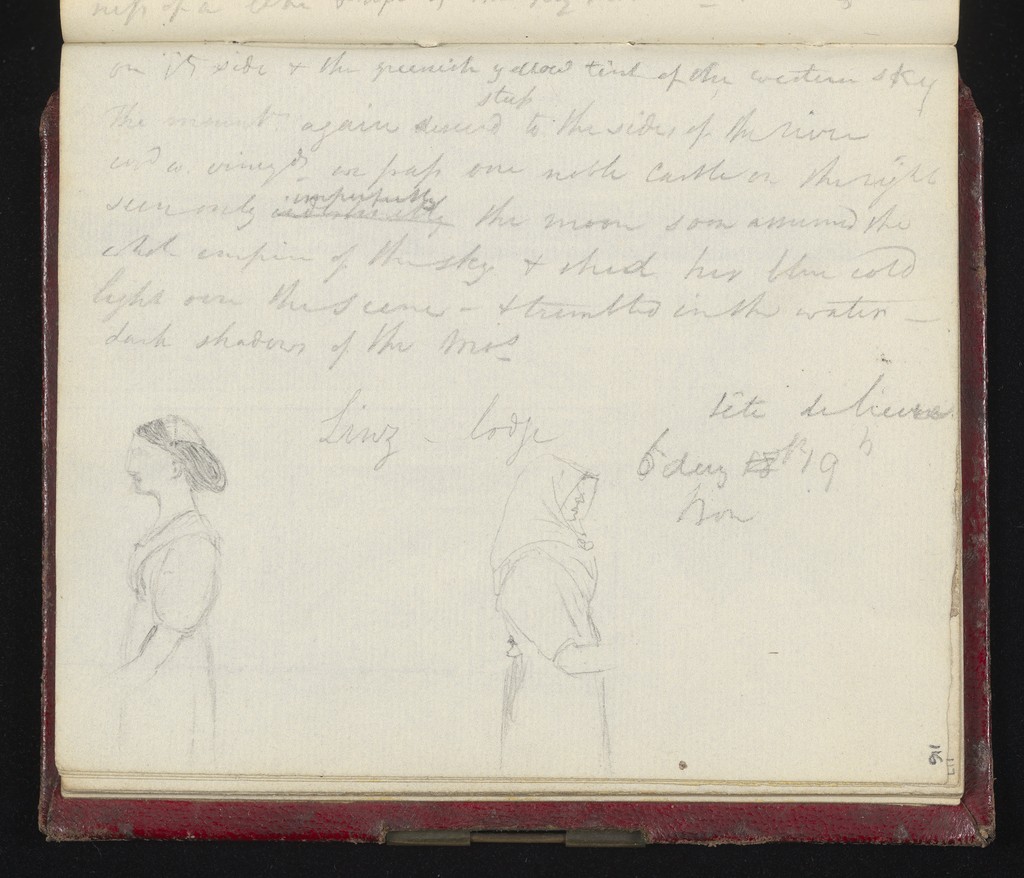 on its side & the greenish yellow tint of the western sky
steep
The mount again descend to the sides of the river
cd w. vineyds we pass one noble castle on the right
imperfectly
seen only the moon soon assumed the
whole empire of the sky & shed her blue cold
light over the scene - & trembled in the water -
dark shadows of the mos
Linz - lodge
tête de lievre
6 day 19th
Mon
116
117